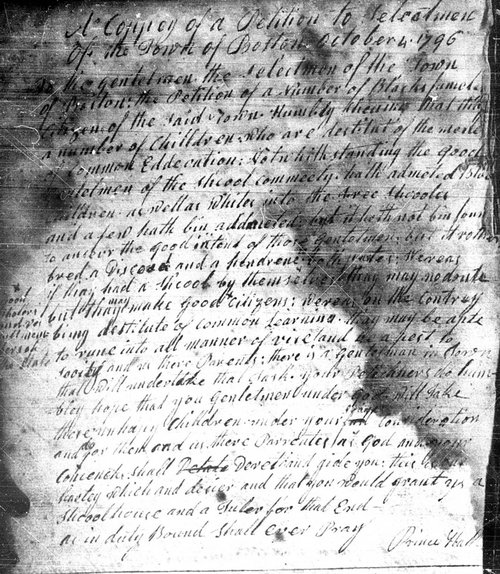 A Coppey of a Petition to Selectmen
Of the Town of Boston October 4 1796
To the Gentelmen the Selectmen of the Town
of Boston: the Petition of a Number of Blacks
Citizen of the said Town Humbly sheweth that
a number of Children: who are destitut of the
of Common Eddecation: Notwithstanding the Good
of the Shcool commeety: hath admeted Blk
Children as well as Whites into the free Shcooles
and a few hath bin addmeted: but it hath not bin foun
to answer the good intent of those Gentelmen: but it rother
bred a Discord and a hendrence to Whereas
if they had a Shcool by themselves they may no doute
but they may make Good Citizens: Wereas on the contrey
being destitute of Common Learning: they may be apte
to rune into all manner of vice and be a pest to
society and us there Parents: there is a Gentelman in Town
that Will undertake that task: your Peteaners do hum
bley hope that you Gentelmen under God will take
there unhapy Children under your Consideration
and for them and us there Parrentes as God and your
Concence shall Derect and gide you: this is our
which and desier and that you would grant us a
Shcool house and a Tutor for that End
as in duty Bound Shall Ever Pray
Prince Hall